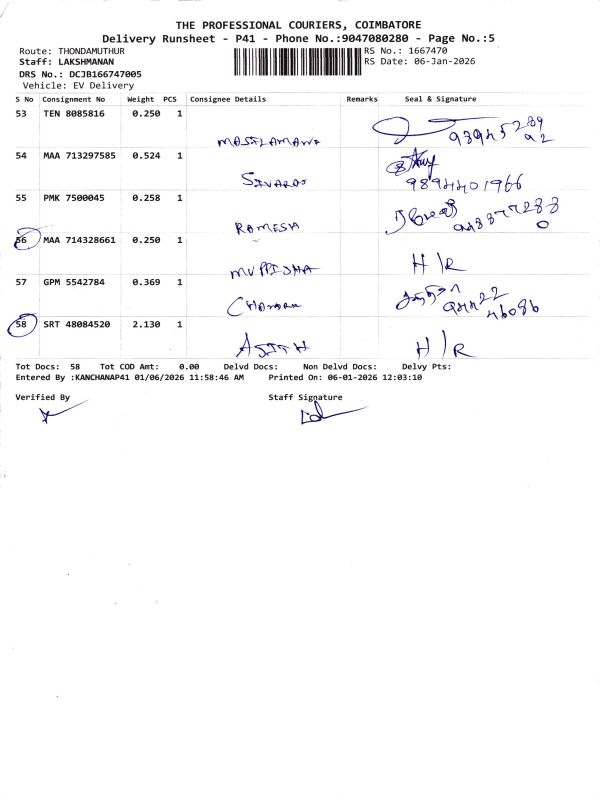 THE PROFESSIONAL COURIERS, COIMBATORE
Delivery Runsheet - P41 - Phone No.:9047080280 - Page No.:5
Route: THONDAMUTHUR
RS No.: 1667470
Staff: LAKSHMANAN
RS Date: 06-Jan-2026
DRS No.: DCJB166747005
Vehicle: EV Delivery
S No Consignment No Weight PCS Consignee Details Remarks Seal & Signature
53 TEN 8085816 0.250 1
54 MAA 713297585 0.524 1
9894401966
55 PMK 7500045 0.258 1
RAMESH
56 MAA 714328661 0.250 1
H/R
57 GPM 5542784 0.369 1
58 SRT 48084520 2.130 1
AJITH H/R
Tot Docs: 58 Tot COD Amt: 0.00 Delvd Docs: Non Delvd Docs: Delvy Pts:
Entered By :KANCHANAP41 01/06/2026 11:58:46 AM Printed On: 06-01-2026 12:03:10
Verified By Staff Signature